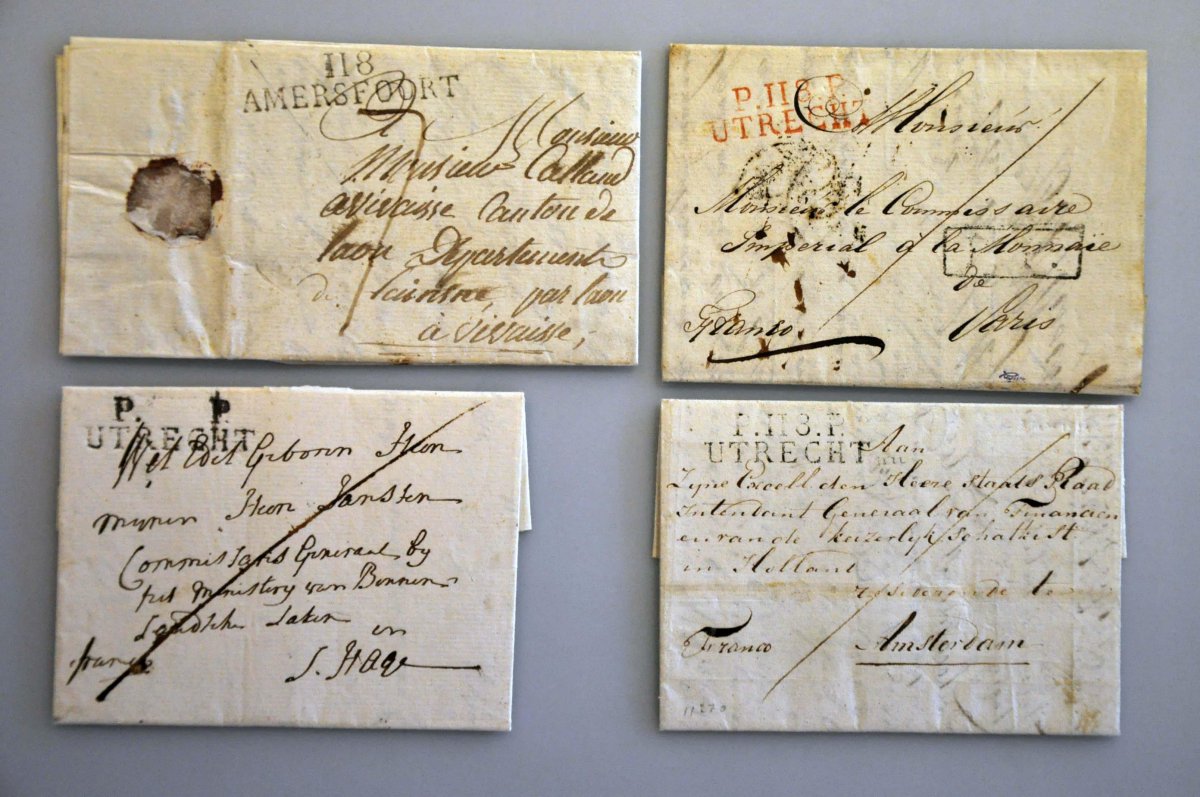 118
AMERSFOORT
Monsieur
Monsieur
a Vivaisse Canton de
laon Departement
de par laon
à Vivaisse,
P.118.P.
UTRECHT
A Monsieur
Monsieur le Commissaire
Imperial à la Monnaie
de
Paris
Franco
P. P.
UTRECHT
Wel Edel Geboren Heer
mynen Heer Janssen
Commissaris Generaal by
het Ministery van Binnen
landsche Zaken
in
franco S. Hage
P.118.P.
UTRECHT
Aan
Zyne Excell den Heere Staats Raad
Intendant Generaal van Financien
en van de keizerlyk Schatkist
in Holland
te
Franco Amsterdam